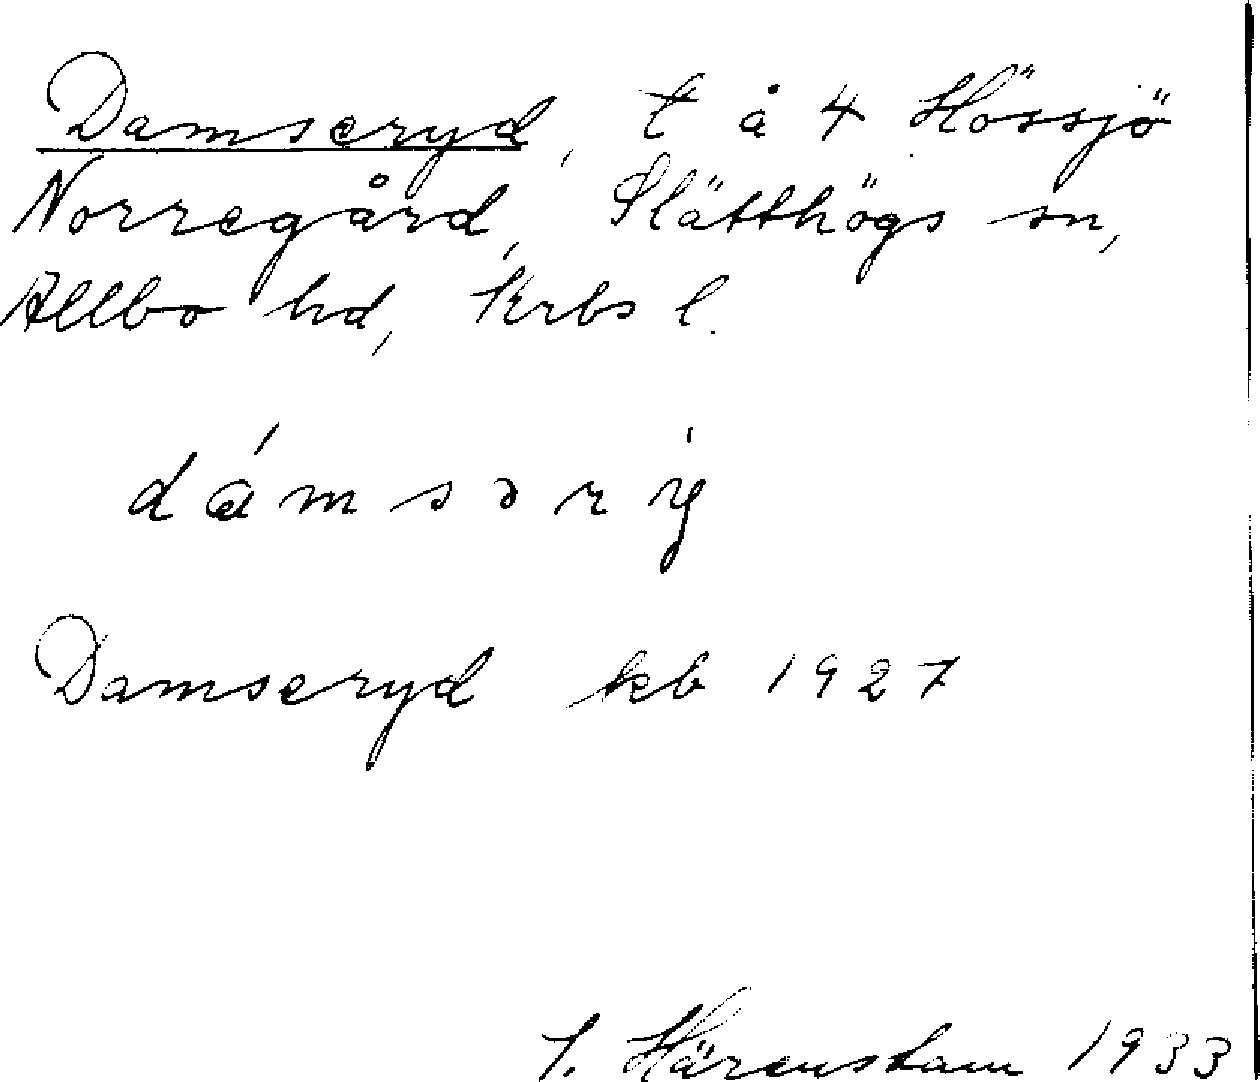 Damseryd, t å 4 Hössjö
Norregård, Slätthögs sn,
Allbo hd, Krbs l.
dámsərẏ
Damseryd kb 1927
Härenstam 1933